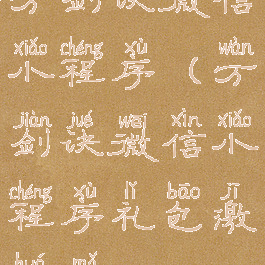 万剑诀微信
xiǎo chéng xù wàn
小程序（万
jiàn jué wēi xìn xiǎo
剑诀微信小
chéng xù lǐ bāo jī
程序礼包激
huó mǎ